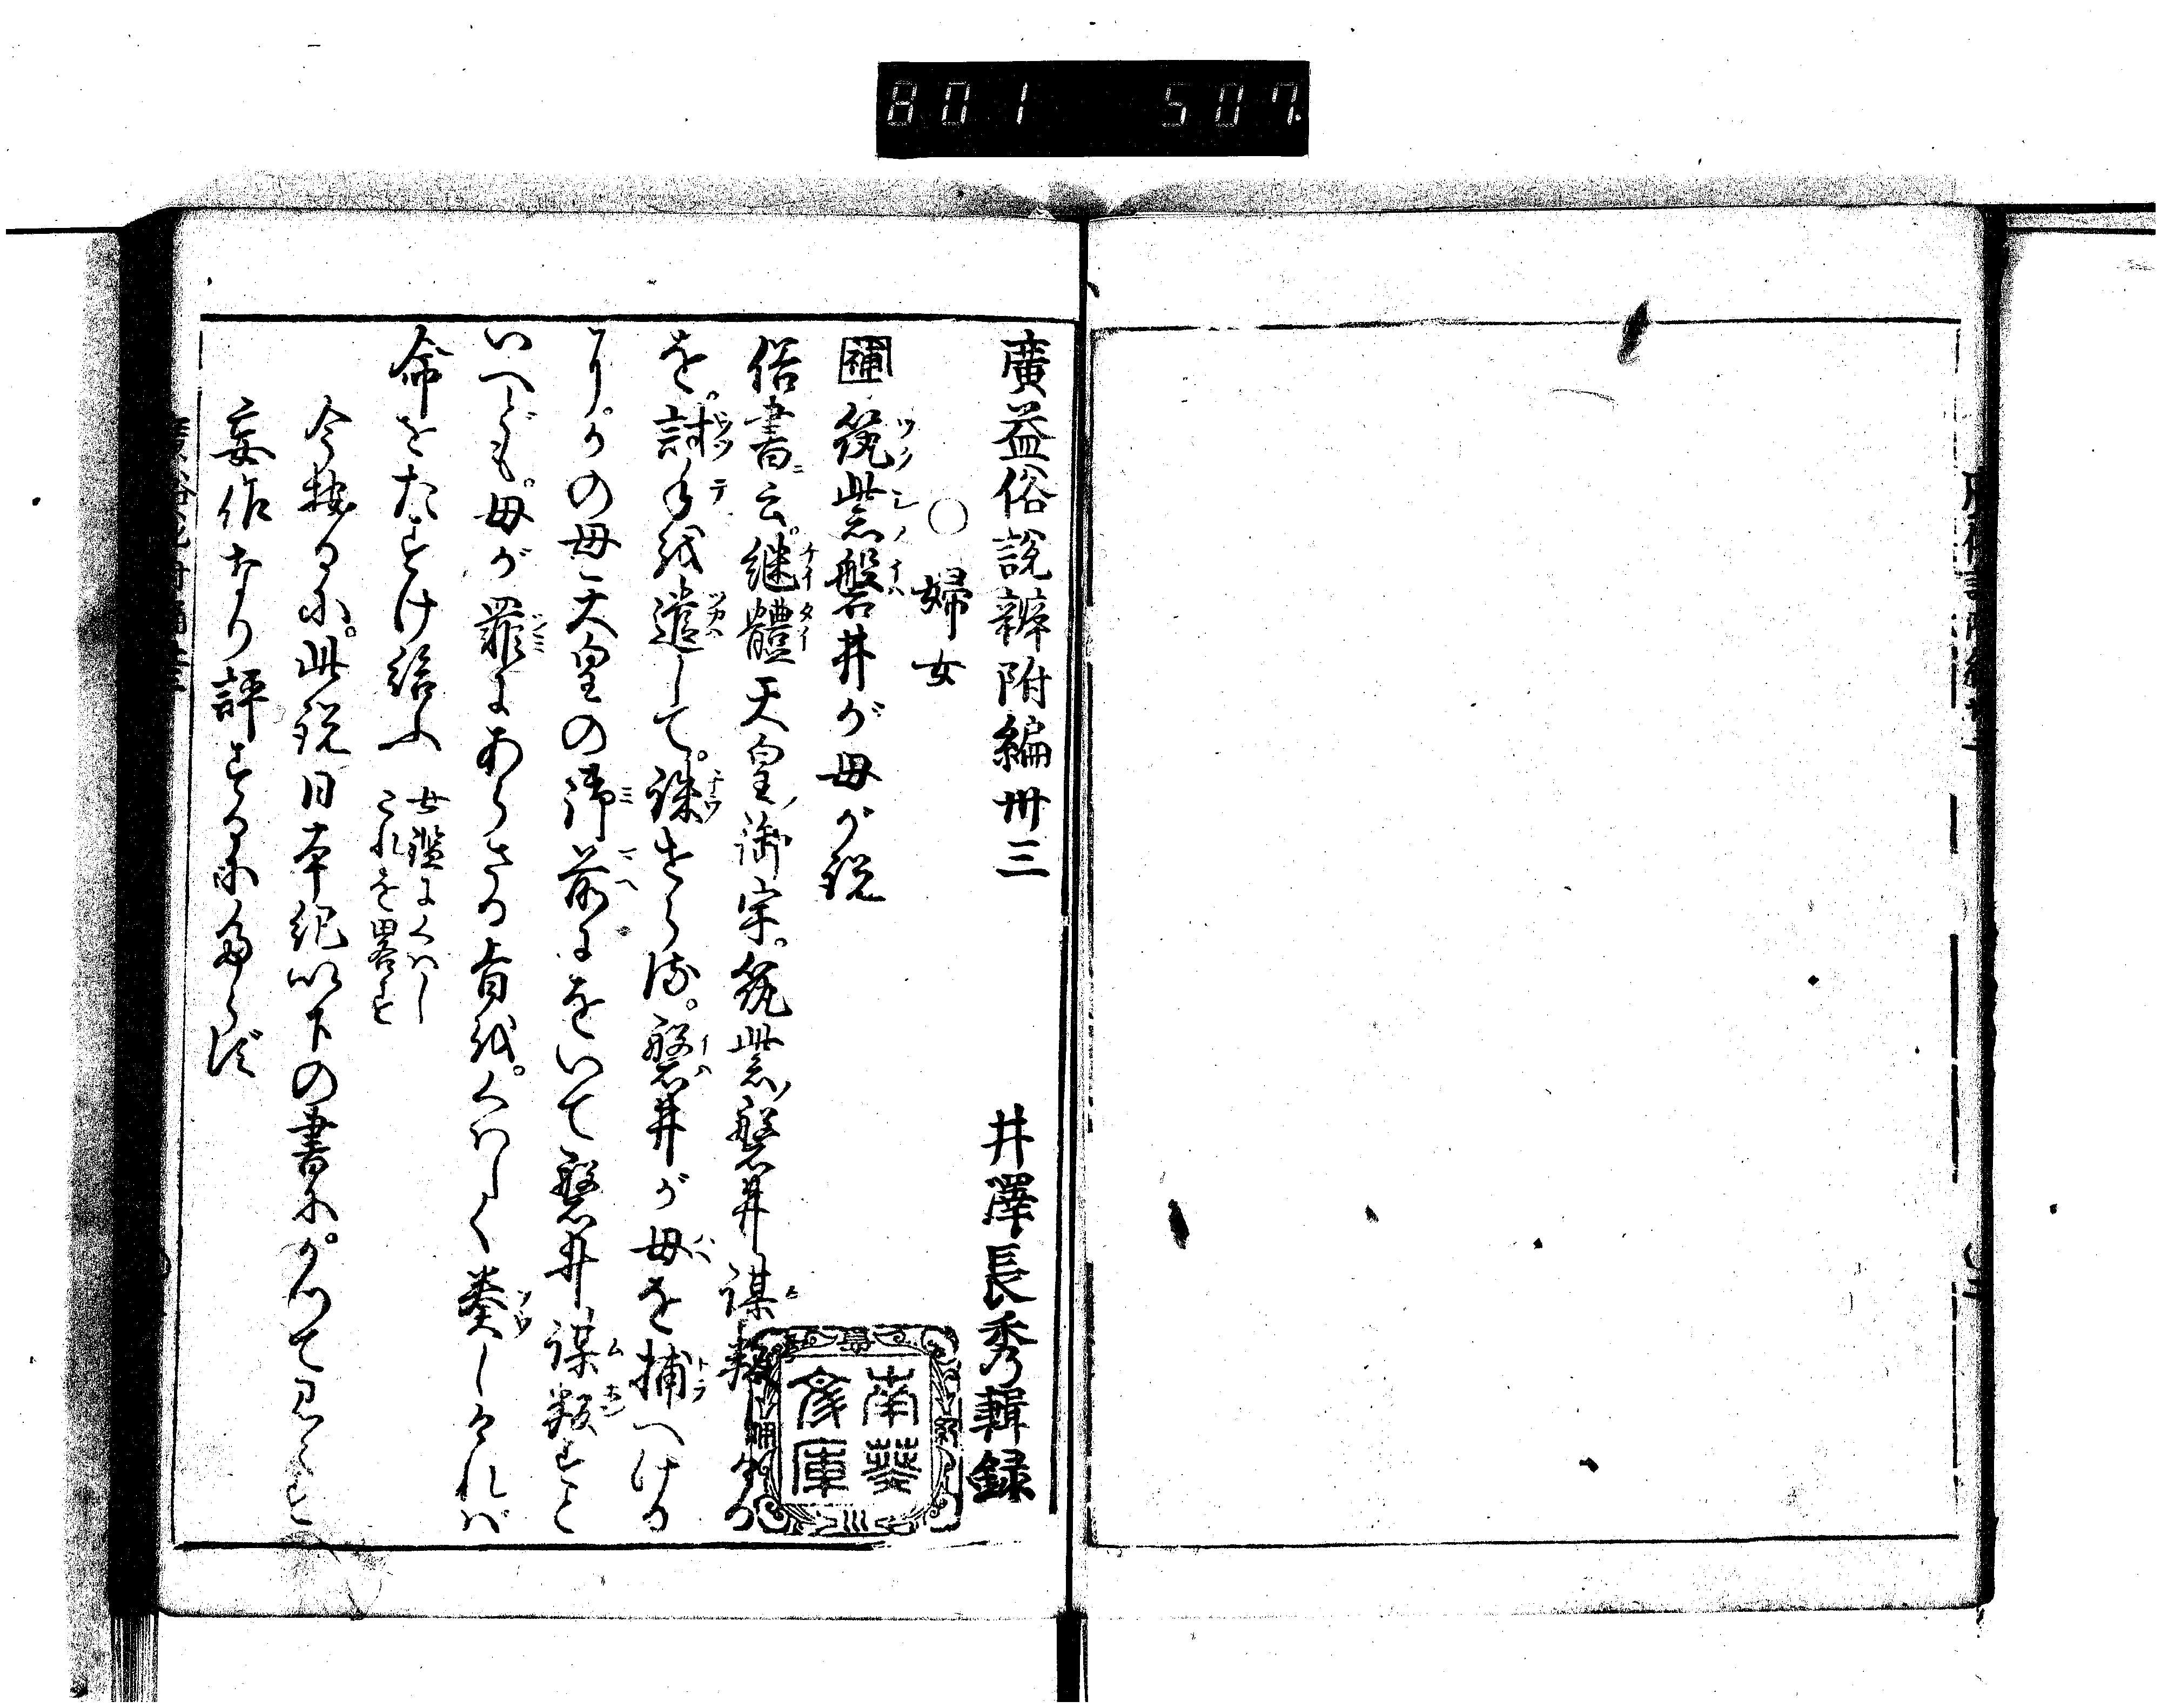 801 507
廣益俗説辨附編卅三 井澤長秀輯録
○婦女
補 筑紫磐井が母が説
俗書ニ云。継體天皇ノ御宇。筑紫ノ磐井謀叛しける
を。討手を遣して。誅せらる。磐井が母を捕へける
に。かの母天皇の御前にをいて磐井謀叛すと
いへども。母が罪にあらざる旨を。くはしく奏しければ
命をたすけ給ふ 女鑑にくはし これを畧す
今按るに。此説日本紀以下の書に。かつて見へず
妄作なり評するにたらず
南葵文庫